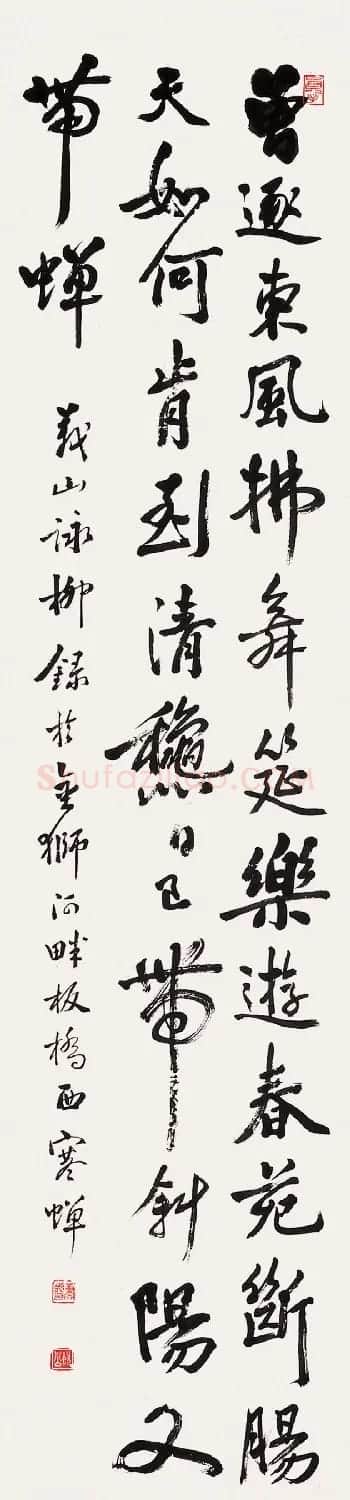 曾逐東風拂舞筵樂遊春苑斷腸
天如何肯到清龝日已帶斜陽又
帶蝉
義山詠柳録於金獅河畔板橋西寒蝉